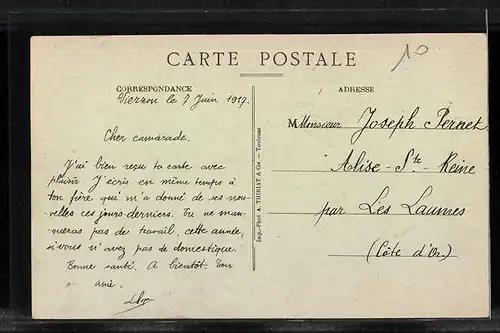 CARTE POSTALE
10
CORRESPONDANCE
ADRESSE
Vierzon le 7 Juin 1917.
Cher camarade.
J'ai bien reçu ta carte avec
plaisir J'écris en même temps à
ton frère qui m'a donné de ses nou-
velles ces jours derniers. Tu ne man-
queras pas de travail, cette année,
si vous n'avez pas de domestique.
Bonne santé. A bientôt. Ton
ami.
Imp.-Phot. A. THIRIAT & Cie - Toulouse
M Monsieur Joseph Pernet
Alise-Ste-Reine
par Les Laumes
(Côte d'Or)